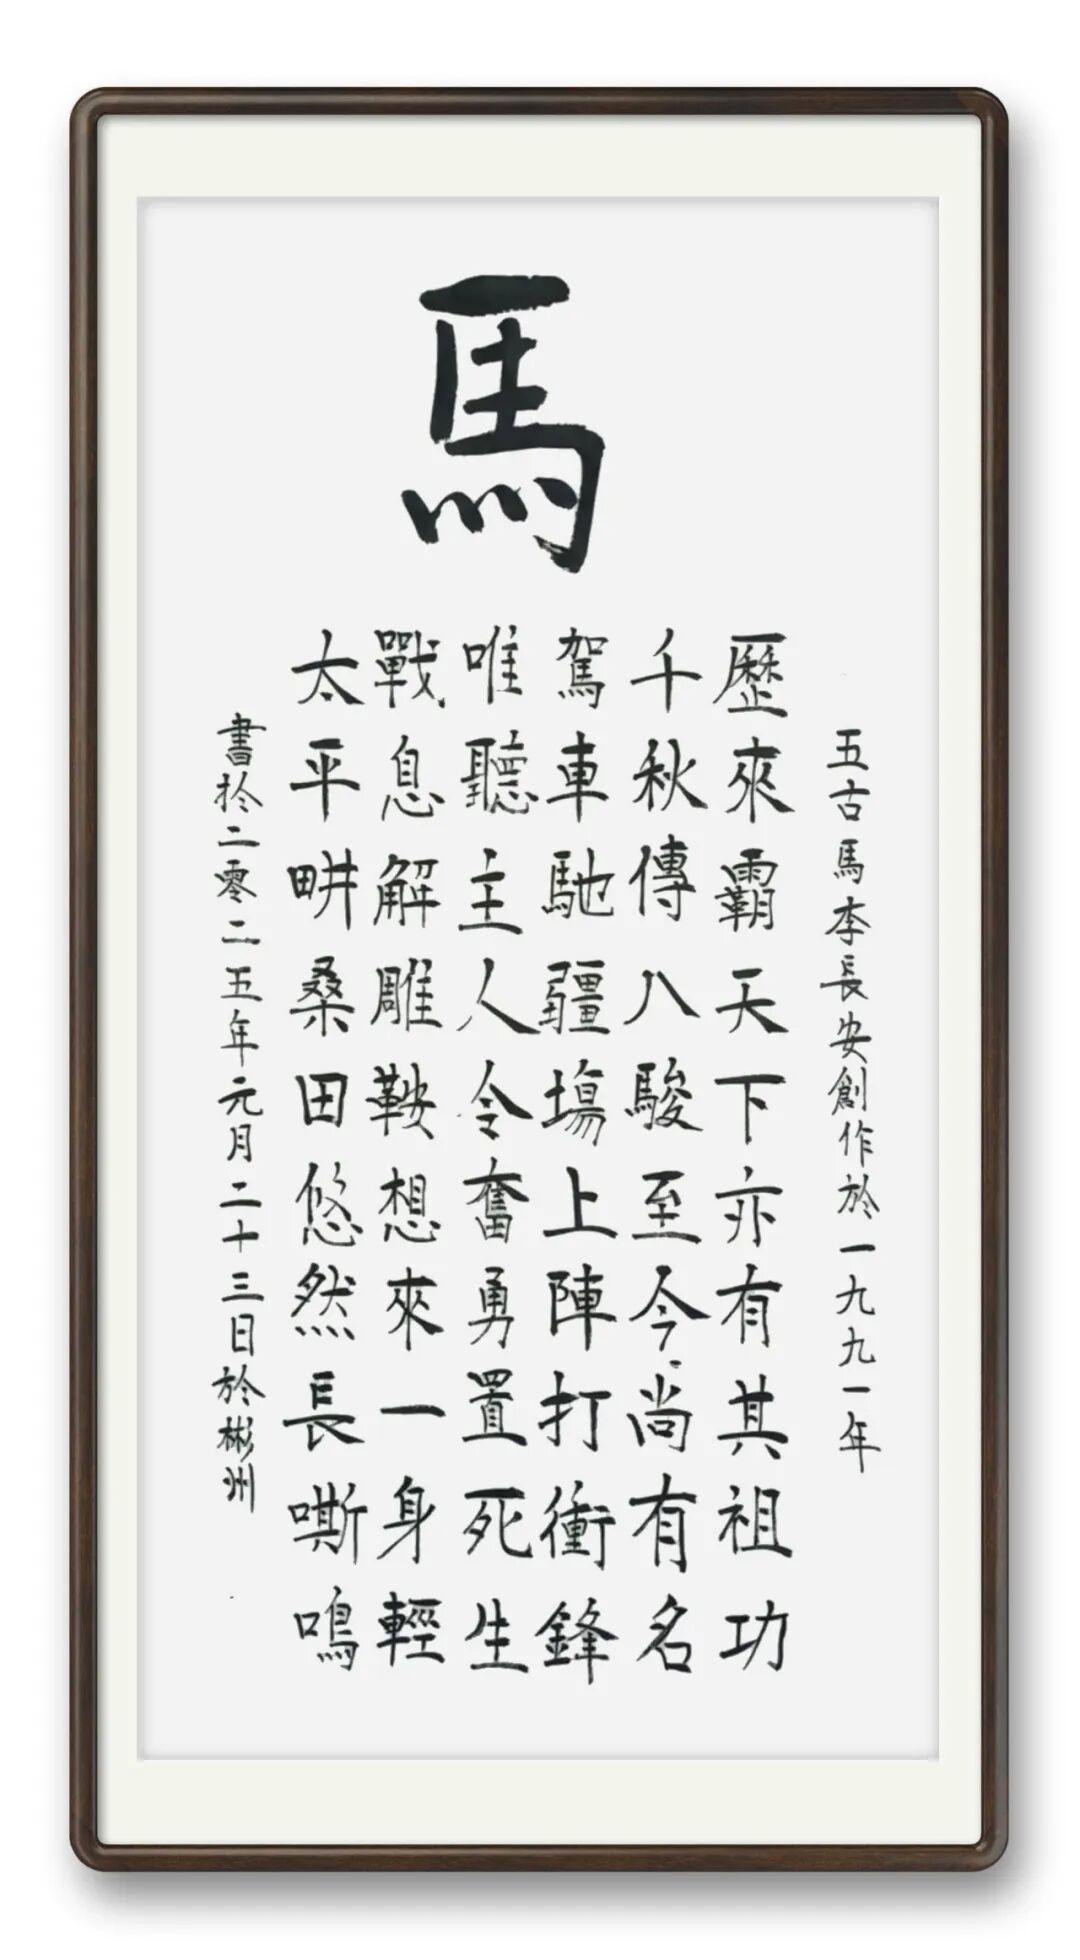 馬
五古馬李長安創作於一九九一年
歷來霸天下亦有其祖功
千秋傳八駿至今尚有名
駕車馳疆場上陣打衝鋒
唯聽主人令奮勇置死生
戰息解雕鞍想來一身輕
太平畊桑田悠然長嘶鳴
書扵二零二五年元月二十三日於彬州